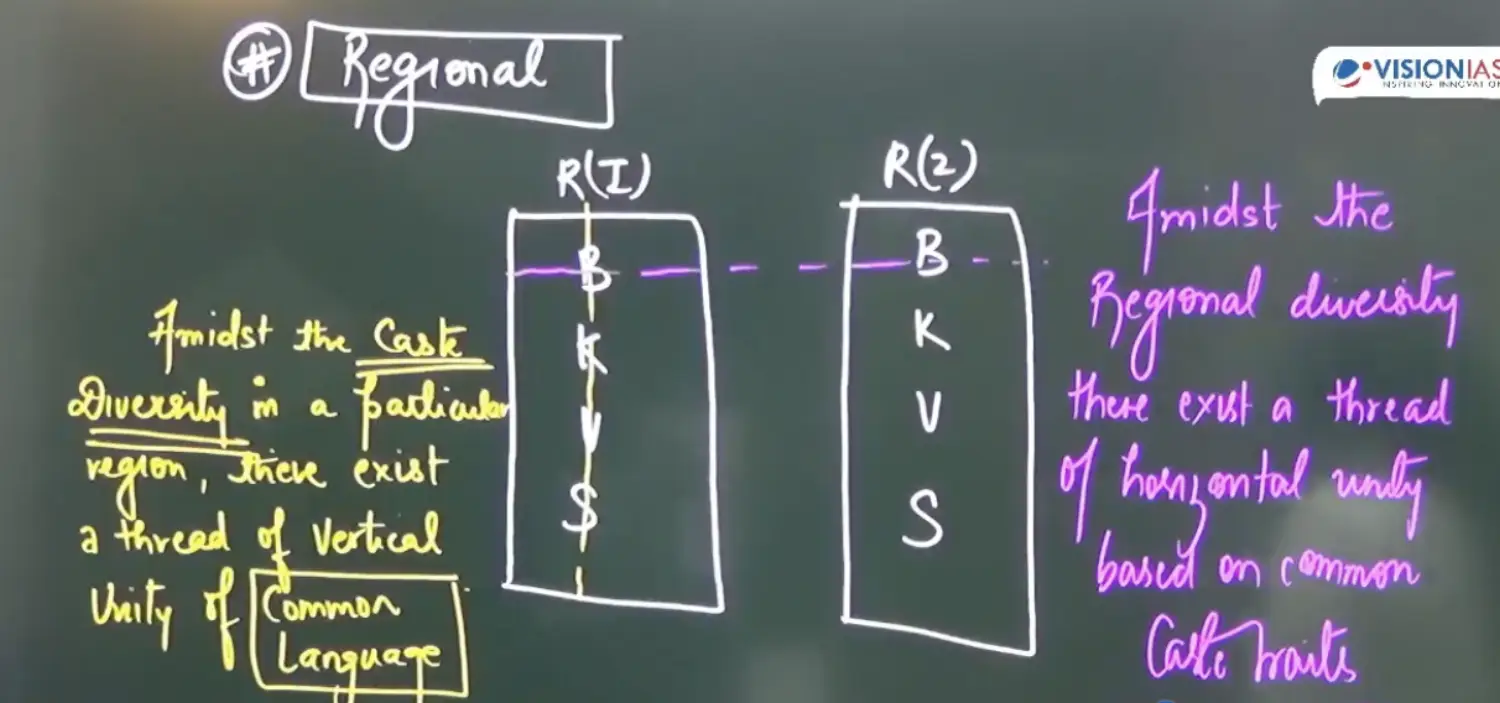 # Regional
VISIONIAS
INSPIRING INNOVATION
R(I)
B
K
V
S
R(2)
B
K
V
S
Amidst the Caste
Diversity in a particular
region, there exist
a thread of Vertical
Unity of Common
Language
Amidst the
Regional diversity
there exist a thread
of horizontal unity
based on common
Caste traits